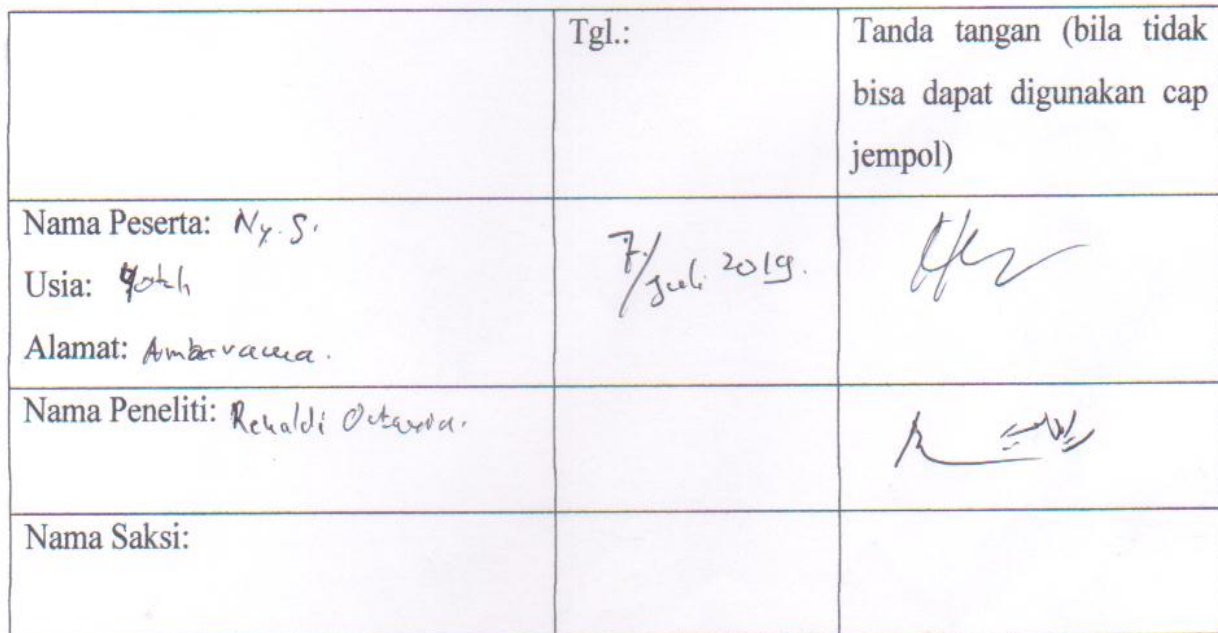 Tgl.:
Tanda tangan (bila tidak
bisa dapat digunakan cap
jempol)
Nama Peserta: Ny. S.
Usia:
Alamat: Ambarawa.
7/Juli 2019.
Nama Peneliti: Renaldi
Nama Saksi: